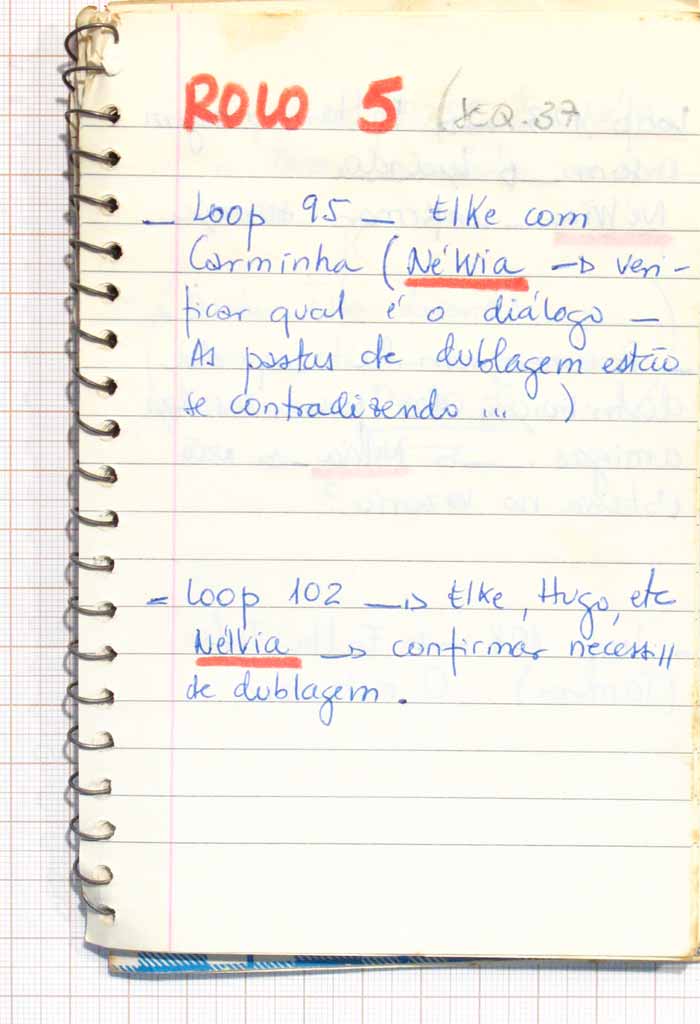 ROLO 5
- Loop 95 - Elke com
Carminha (Nélvia -> veri-
ficar qual é o diálogo -
As pastas de dublagem estão
se contradizendo ... )
- Loop 102 -> Elke, Hugo, etc
Nélvia -> confirmar necessi//
de dublagem.